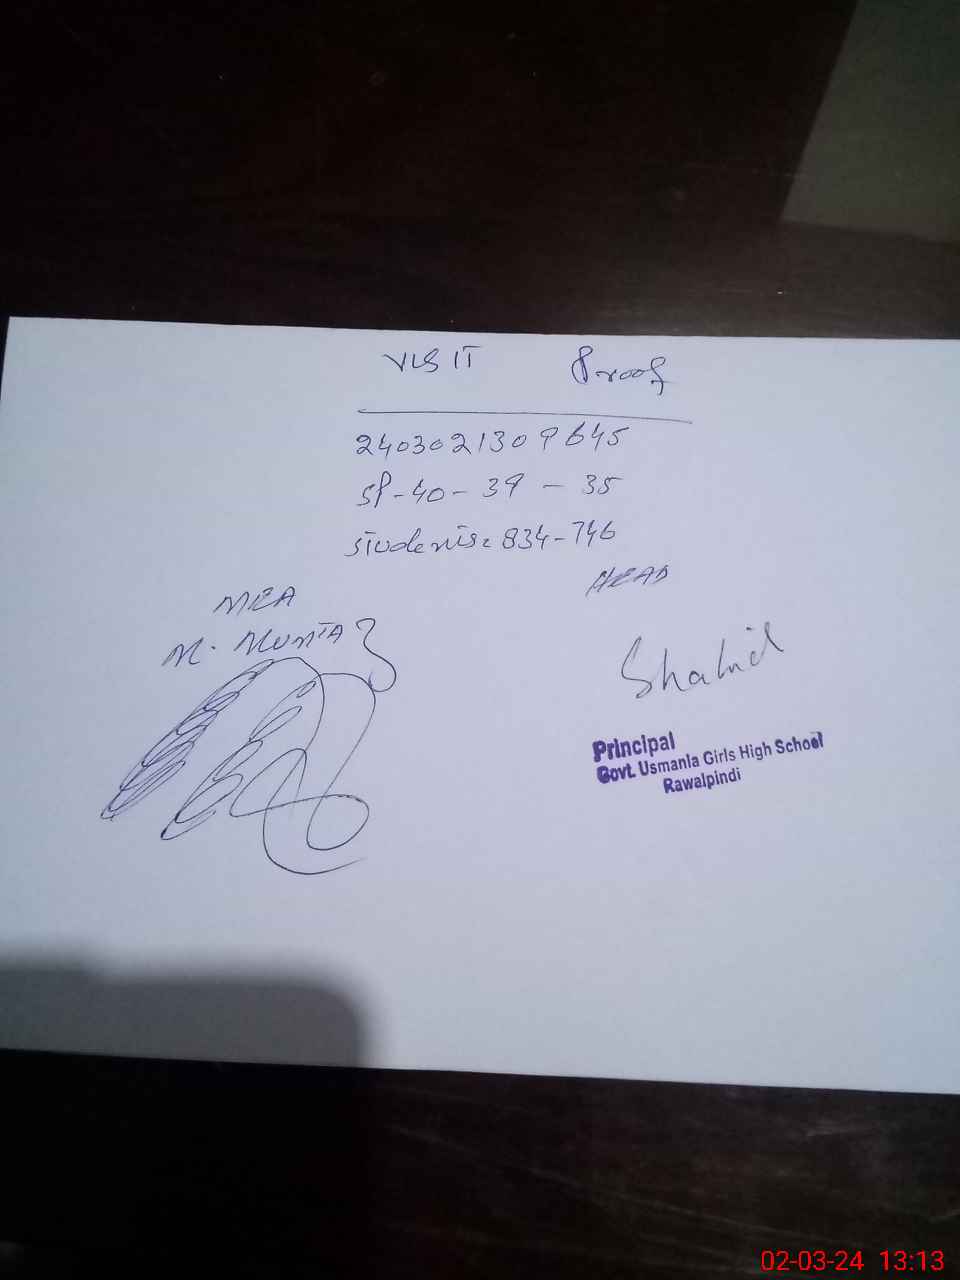 VISIT Proof
2403021309645
SP-40-39-35
Students: 834-746
MEA
HEAD
M. MUMTAZ
Shahid
Principal
Govt. Usmania Girls High School
Rawalpindi
02-03-24 13:13